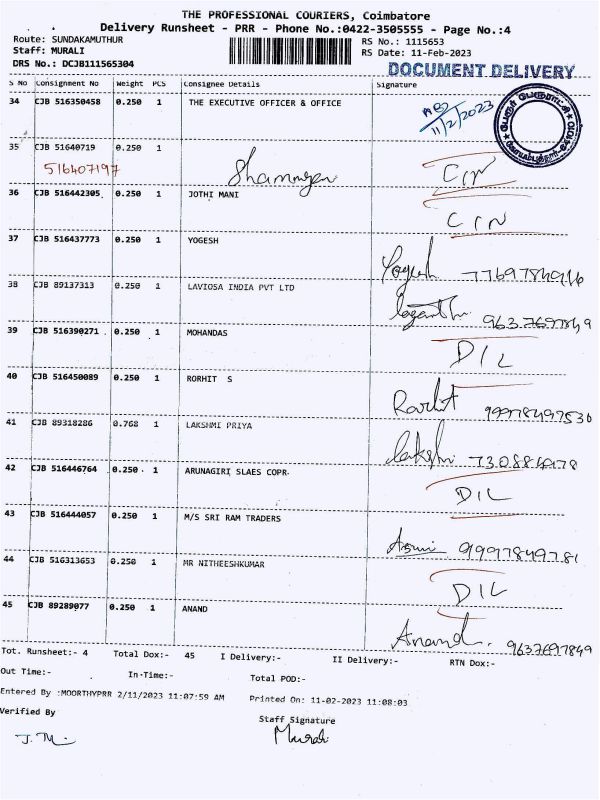 THE PROFESSIONAL COURIERS, Coimbatore
Delivery Runsheet - PRR - Phone No.:0422-3505555 - Page No.:4
Route: SUNDAKAMUTHUR
Staff: MURALI
DRS No.: DCJB111565304
RS No.: 1115653
RS Date: 11-Feb-2023
DOCUMENT DELIVERY
S No Consignment No Weight PCS Consignee Details Signature
34 CJB 516350458 0.250 1 THE EXECUTIVE OFFICER & OFFICE 11/2/2023
35 CJB 51640719 0.250 1
516407197 Shanmugan C/N
36 CJB 516442305 0.250 1 JOTHI MANI C/N
37 CJB 516437773 0.250 1 YOGESH Yogesh
38 CJB 89137313 0.250 1 LAVIOSA INDIA PVT LTD
39 CJB 516390271 0.250 1 MOHANDAS D/L
40 CJB 516450089 0.250 1 RORHIT S
41 CJB 89318286 0.768 1 LAKSHMI PRIYA
42 CJB 516446764 0.250 1 ARUNAGIRI SLAES COPR D/L
43 CJB 516444057 0.250 1 M/S SRI RAM TRADERS
44 CJB 516313653 0.250 1 MR NITHEESHKUMAR D/L
45 CJB 89289077 0.250 1 ANAND Anand. 9637697849
Tot. Runsheet:- 4 Total Dox:- 45 I Delivery:- II Delivery:- RTN Dox:-
Out Time:- In-Time:- Total POD:-
Entered By :MOORTHYPRR 2/11/2023 11:07:59 AM Printed On: 11-02-2023 11:08:03
Verified By Staff Signature
J. M. Murali